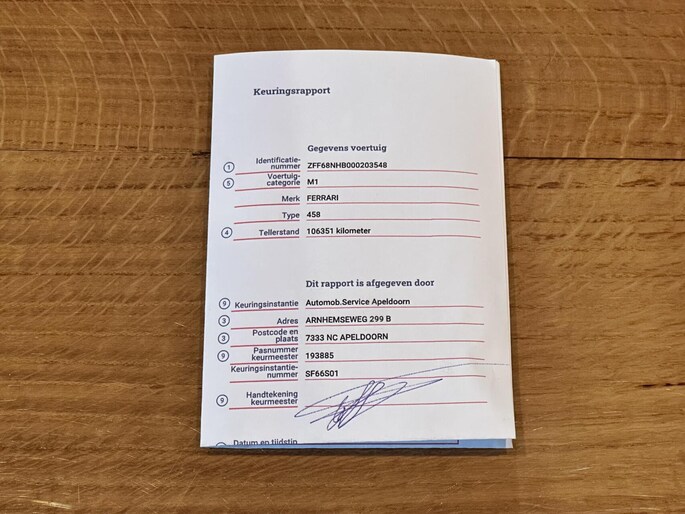 Keuringsrapport
Gegevens voertuig
1 Identificatie-
nummer ZFF68NHB000203548
5 Voertuig-
categorie M1
Merk FERRARI
Type 458
4 Tellerstand 106351 kilometer
Dit rapport is afgegeven door
9 Keuringsinstantie Automob.Service Apeldoorn
3 Adres ARNHEMSEWEG 299 B
3 Postcode en
plaats 7333 NC APELDOORN
9 Pasnummer
keurmeester 193885
Keuringsinstantie-
nummer SF66S01
9 Handtekening
keurmeester
Datum en tijdstip